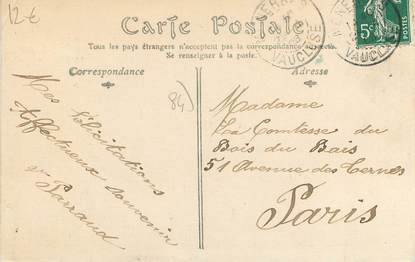 12-€
Carte Postale
Tous les pays étrangers n'acceptent pas la correspondance au recto.
Se renseigner à la poste.
Correspondance
Adresse
VAUCLUSE
VAUCLUSE
5c
84
Mes félicitations
Affectueux souvenir
Parraud
Madame
La Comtesse du
Bois du Bais
51 Avenue des Ternes
Paris